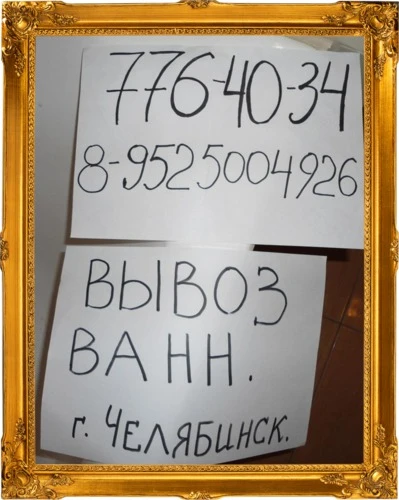 776-40-34
8-9525004926
ВЫВОЗ
ВАНН.
г. ЧЕЛЯБИНСК.